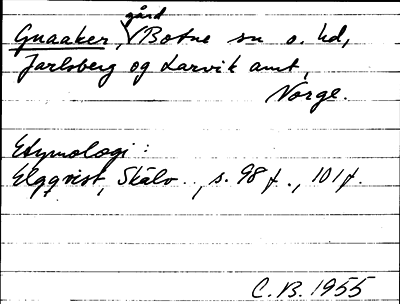 Gnaaker, gård Botne sn o. hd,
Jarlsberg og Larvik amt,
Norge.
Etymologi:
Elgqvist, Skälv.., s. 98 f., 101 f.
C. B. 1955